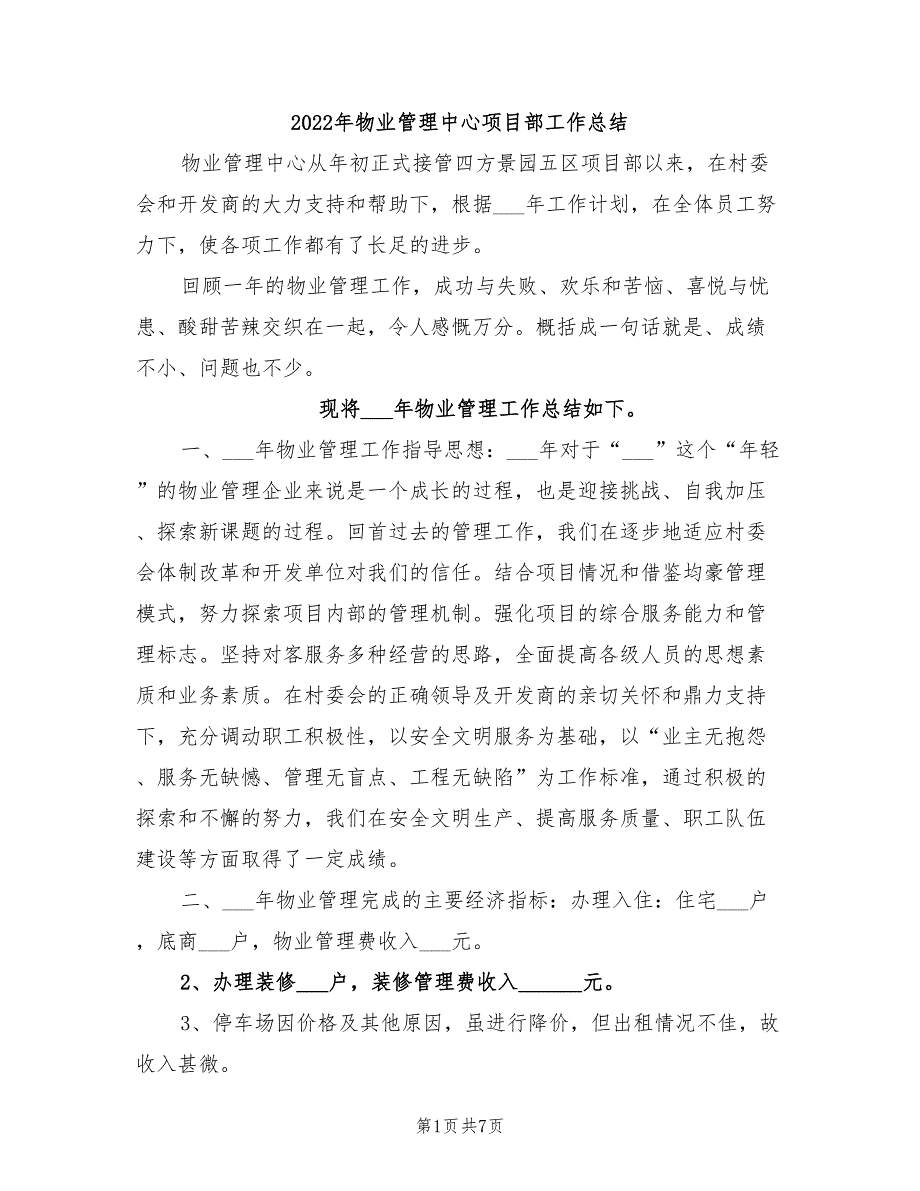 2022年物业管理中心项目部工作总结
物业管理中心从年初正式接管四方景园五区项目部以来，在村委
会和开发商的大力支持和帮助下，根据___年工作计划，在全体员工努
力下，使各项工作都有了长足的进步。
回顾一年的物业管理工作，成功与失败、欢乐和苦恼、喜悦与忧
患、酸甜苦辣交织在一起，令人感慨万分。概括成一句话就是、成绩
不小、问题也不少。
现将___年物业管理工作总结如下。
一、___年物业管理工作指导思想：___年对于“___”这个“年轻
”的物业管理企业来说是一个成长的过程，也是迎接挑战、自我加压
、探索新课题的过程。回首过去的管理工作，我们在逐步地适应村委
会体制改革和开发单位对我们的信任。结合项目情况和借鉴均豪管理
模式，努力探索项目内部的管理机制。强化项目的综合服务能力和管
理标志。坚持对客服务多种经营的思路，全面提高各级人员的思想素
质和业务素质。在村委会的正确领导及开发商的亲切关怀和鼎力支持
下，充分调动职工积极性，以安全文明服务为基础，以“业主无抱怨
、服务无缺憾、管理无盲点、工程无缺陷”为工作标准，通过积极的
探索和不懈的努力，我们在安全文明生产、提高服务质量、职工队伍
建设等方面取得了一定成绩。
二、___年物业管理完成的主要经济指标：办理入住：住宅___户
，底商___户，物业管理费收入___元。
2、办理装修___户，装修管理费收入______元。
3、停车场因价格及其他原因，虽进行降价，但出租情况不佳，故
收入甚微。
第1页共7页